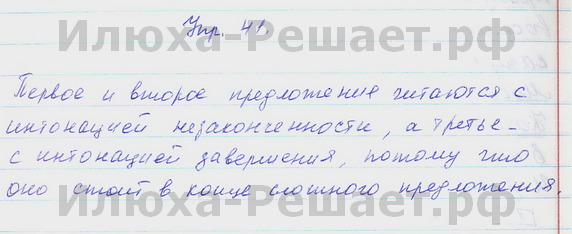 Упр. 41.
Илюха-Решает.рф
Первое и второе предложения читаются с
интонацией незаконченности, а третье -
с интонацией завершения, потому что
оно стоит в конце сложного предложения.
Илюха-Решает.рф